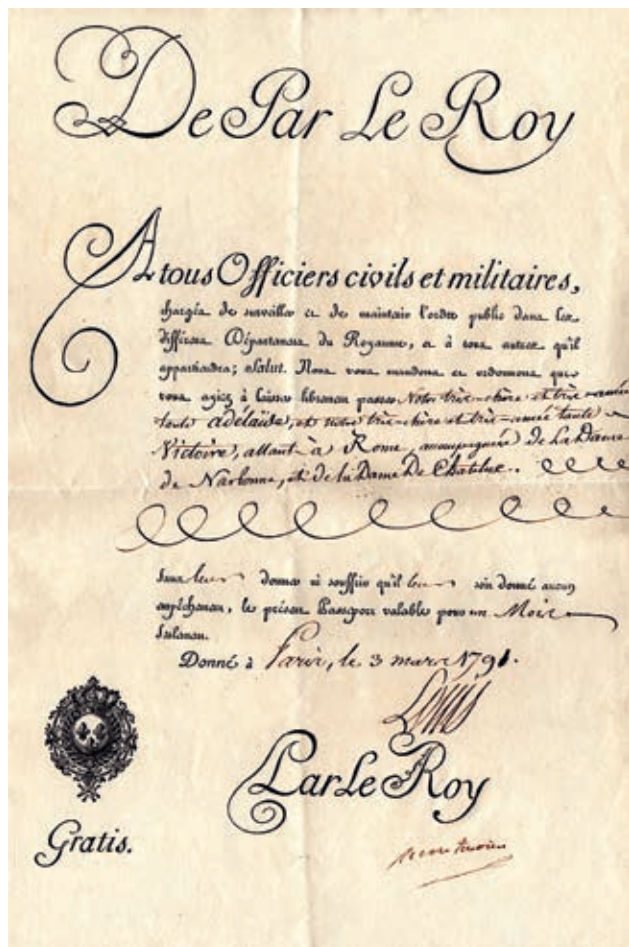 De Par Le Roy
A tous Officiers civils et militaires,
chargés de surveiller et de maintenir l'ordre public dans les
différens Départemens du Royaume, et à tous autres qu'il
appartiendra; Salut. Nous vous mandons et ordonnons que
vous ayiez à laisser librement passer Notre très-chère et très-aimée
tante adélaïde, et notre très-chère et très-aimée tante
Victoire, allant à Rome, accompagnées de La Dame
de Narbonne, et de la Dame De Chatelux.
Sans leur donner ni souffrir qu'il leur soit donné aucun
empêchement, le présent Passeport valable pour un Mois
Seulement.
Donné à Paris, le 3 mars 1791.
Louis
Par Le Roy
Gratis.